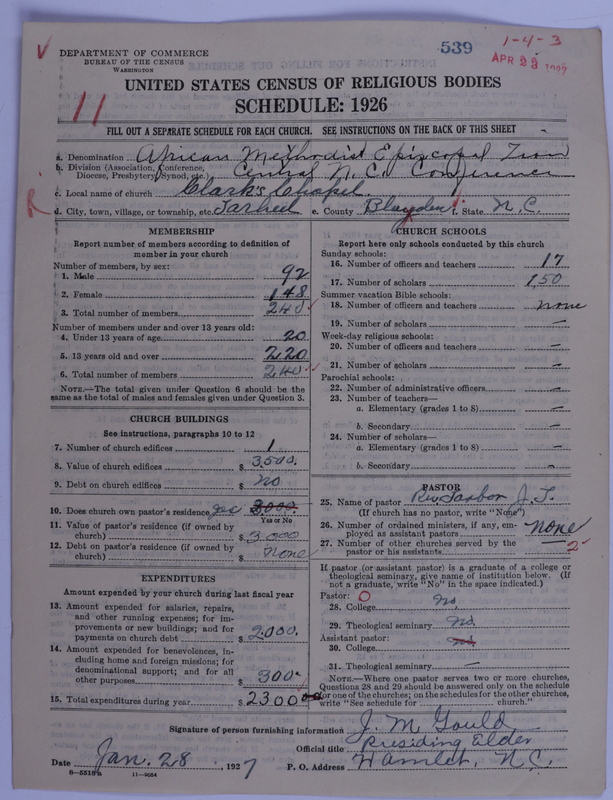 539
1-4-3
APR 23 1927
V
DEPARTMENT OF COMMERCE
BUREAU OF THE CENSUS
WASHINGTON
UNITED STATES CENSUS OF RELIGIOUS BODIES
SCHEDULE: 1926
11
FILL OUT A SEPARATE SCHEDULE FOR EACH CHURCH. SEE INSTRUCTIONS ON THE BACK OF THIS SHEET
a. Denomination African Methodist Episcopal Zion
b. Division (Association, Conference, Diocese, Presbytery, Synod, etc.) Central N.C. Conference
c. Local name of church Clark's Chapel
R
d. City, town, village, or township, etc. Tarheel e. County Blayden f. State N.C.
MEMBERSHIP
Report number of members according to definition of
member in your church
Number of members, by sex:
1. Male 92
2. Female 148
3. Total number of members 240
Number of members under and over 13 years old:
4. Under 13 years of age 20
5. 13 years old and over 220
6. Total number of members 240
NOTE.—The total given under Question 6 should be the
same as the total of males and females given under Question 3.
CHURCH BUILDINGS
See instructions, paragraphs 10 to 12
7. Number of church edifices 1
8. Value of church edifices $ 3500.
9. Debt on church edifices $ no
10. Does church own pastor's residence yes 3000.
Yes or No
11. Value of pastor's residence (if owned by
church) $ 3000
12. Debt on pastor's residence (if owned by
church) $ none
EXPENDITURES
Amount expended by your church during last fiscal year
13. Amount expended for salaries, repairs,
and other running expenses; for im-
provements or new buildings; and for
payments on church debt $ 2000.
14. Amount expended for benevolences, in-
cluding home and foreign missions; for
denominational support; and for all
other purposes $ 300.
15. Total expenditures during year $ 2300
CHURCH SCHOOLS
Report here only schools conducted by this church
Sunday schools:
16. Number of officers and teachers 17
17. Number of scholars 150
Summer vacation Bible schools:
18. Number of officers and teachers none
19. Number of scholars —
Week-day religious schools:
20. Number of officers and teachers —
21. Number of scholars —
Parochial schools:
22. Number of administrative officers —
23. Number of teachers—
a. Elementary (grades 1 to 8) —
b. Secondary —
24. Number of scholars—
a. Elementary (grades 1 to 8) —
b. Secondary —
PASTOR
25. Name of pastor Rev J. T.
(If church has no pastor, write "None")
26. Number of ordained ministers, if any, em-
ployed as assistant pastors none
27. Number of other churches served by the
pastor or his assistants 2
If pastor (or assistant pastor) is a graduate of a college or
theological seminary, give name of institution below. (If
not a graduate, write "No" in the space indicated.)
Pastor: O
28. College no
29. Theological seminary no.
Assistant pastor: no
30. College
31. Theological seminary —
NOTE.—Where one pastor serves two or more churches,
Questions 28 and 29 should be answered only on the schedule
for one of the churches; on the schedules for the other churches,
write "See schedule for church."
Signature of person furnishing information J. M. Gould
Official title Presiding Elder
Date Jan. 28, 1927 P. O. Address Hamlet, N.C.
8—5518a 11—9054